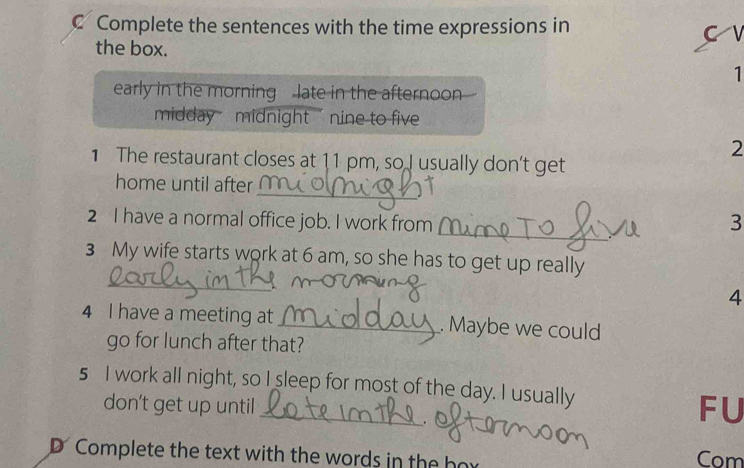 C Complete the sentences with the time expressions in
the box.
early in the morning late in the afternoon
midday midnight nine to five
1 The restaurant closes at 11 pm, so I usually don't get
home until after midnight.
2 I have a normal office job. I work from nine To five.
3 My wife starts work at 6 am, so she has to get up really
early in the morning.
4 I have a meeting at midday. Maybe we could
go for lunch after that?
5 I work all night, so I sleep for most of the day. I usually
don't get up until late in the afternoon.
D Complete the text with the words in the box
C
1
2
3
4
FU
Com